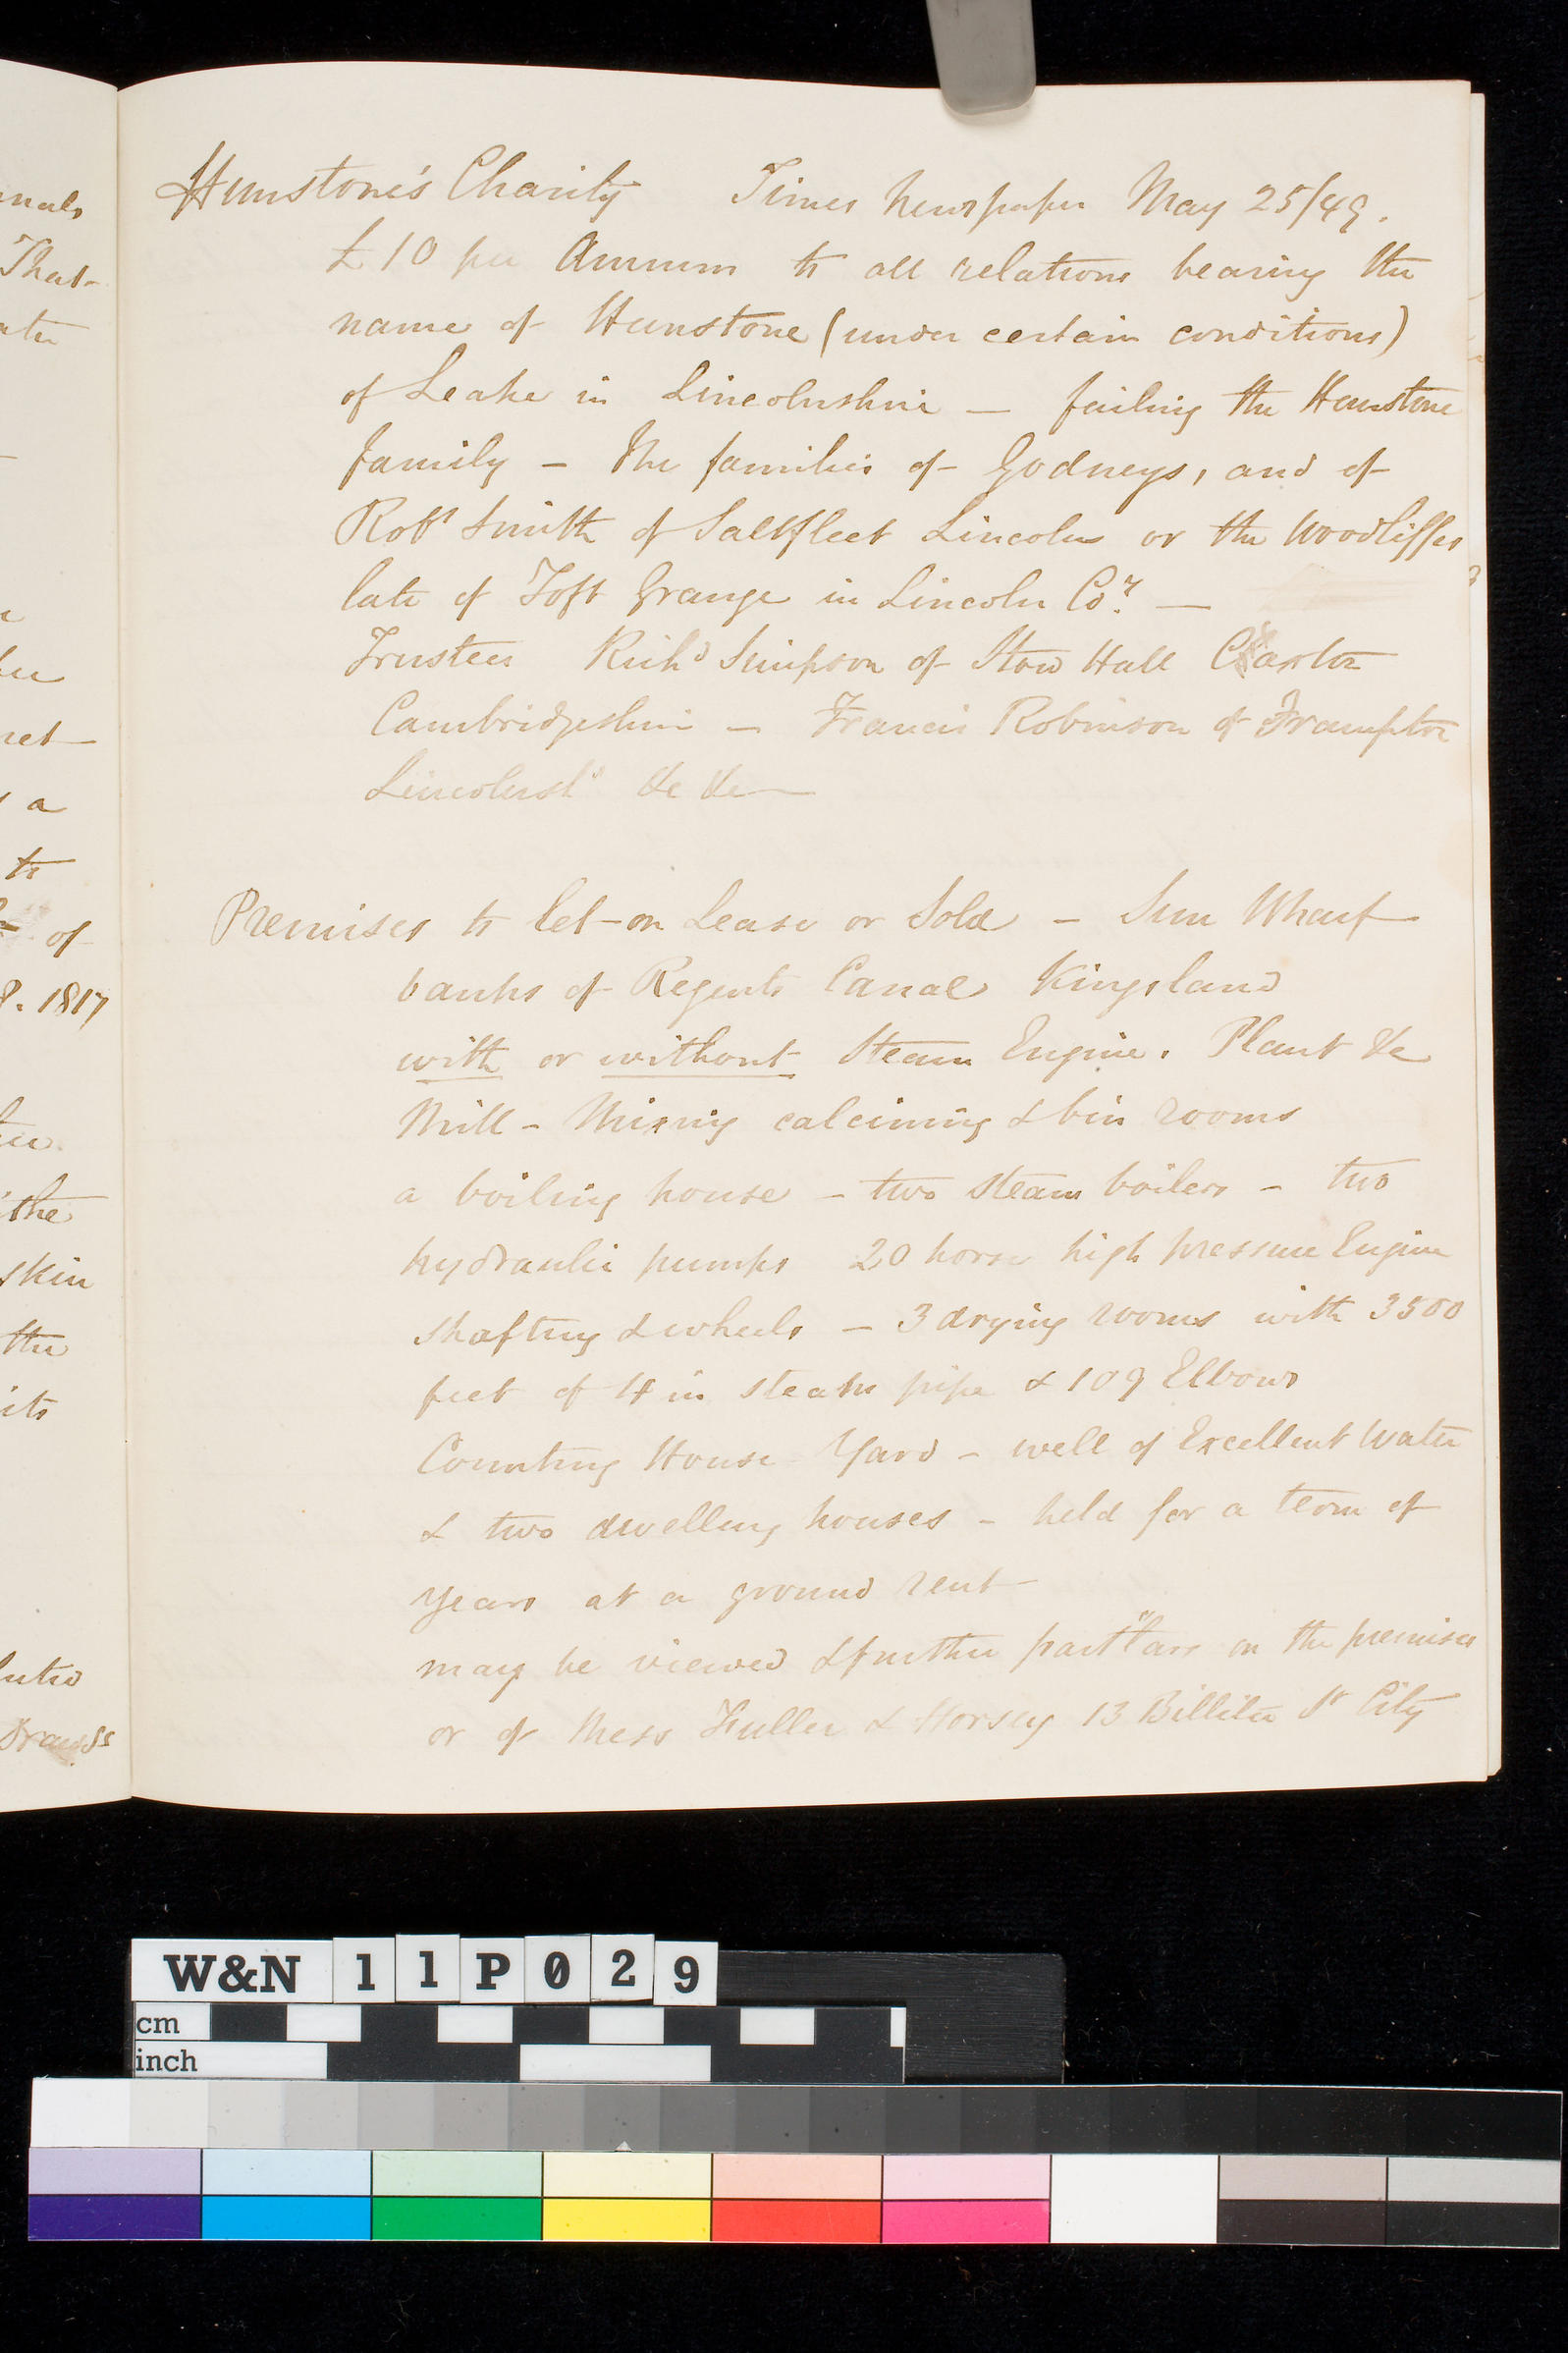 Hunstone's Charity Times Newspaper May 25/49.
£10 per Annum to all relations bearing the
name of Hunstone (under certain conditions)
of Leake in Lincolnshire — failing the Hunstone
family - the families of Godneys, and of
Robt Smith of Saltfleet Lincoln or the Woodliffes
late of Toft Grange in Lincoln Coy. —
Trustees Richd Simpson of Stow Hall Caxton
Cambridgeshire — Francis Robinson of Frampton
Lincolnsh &c &c —
Premises to let on Lease or Sold - Sun Wharf
banks of Regents Canal Kingsland
with or without Steam Engine. Plant &c
Mill - Mixing calcining & bin rooms
a boiling house - two steam boilers - two
hydraulic pumps 20 horse high pressure Engine
shafting & wheels - 3 drying rooms with 3500
feet of 4 in steam pipe & 109 Elbows
Counting House Yard - well of Excellent Water
& two dwelling houses - held for a term of
years at a ground rent
may be viewed & further partlars on the premises
or of Mess Fuller & Horsey 13 Billiter St City
nals
That
of
8. 1817
a
to
the
skin
the
its
W&N 11P029
cm
inch